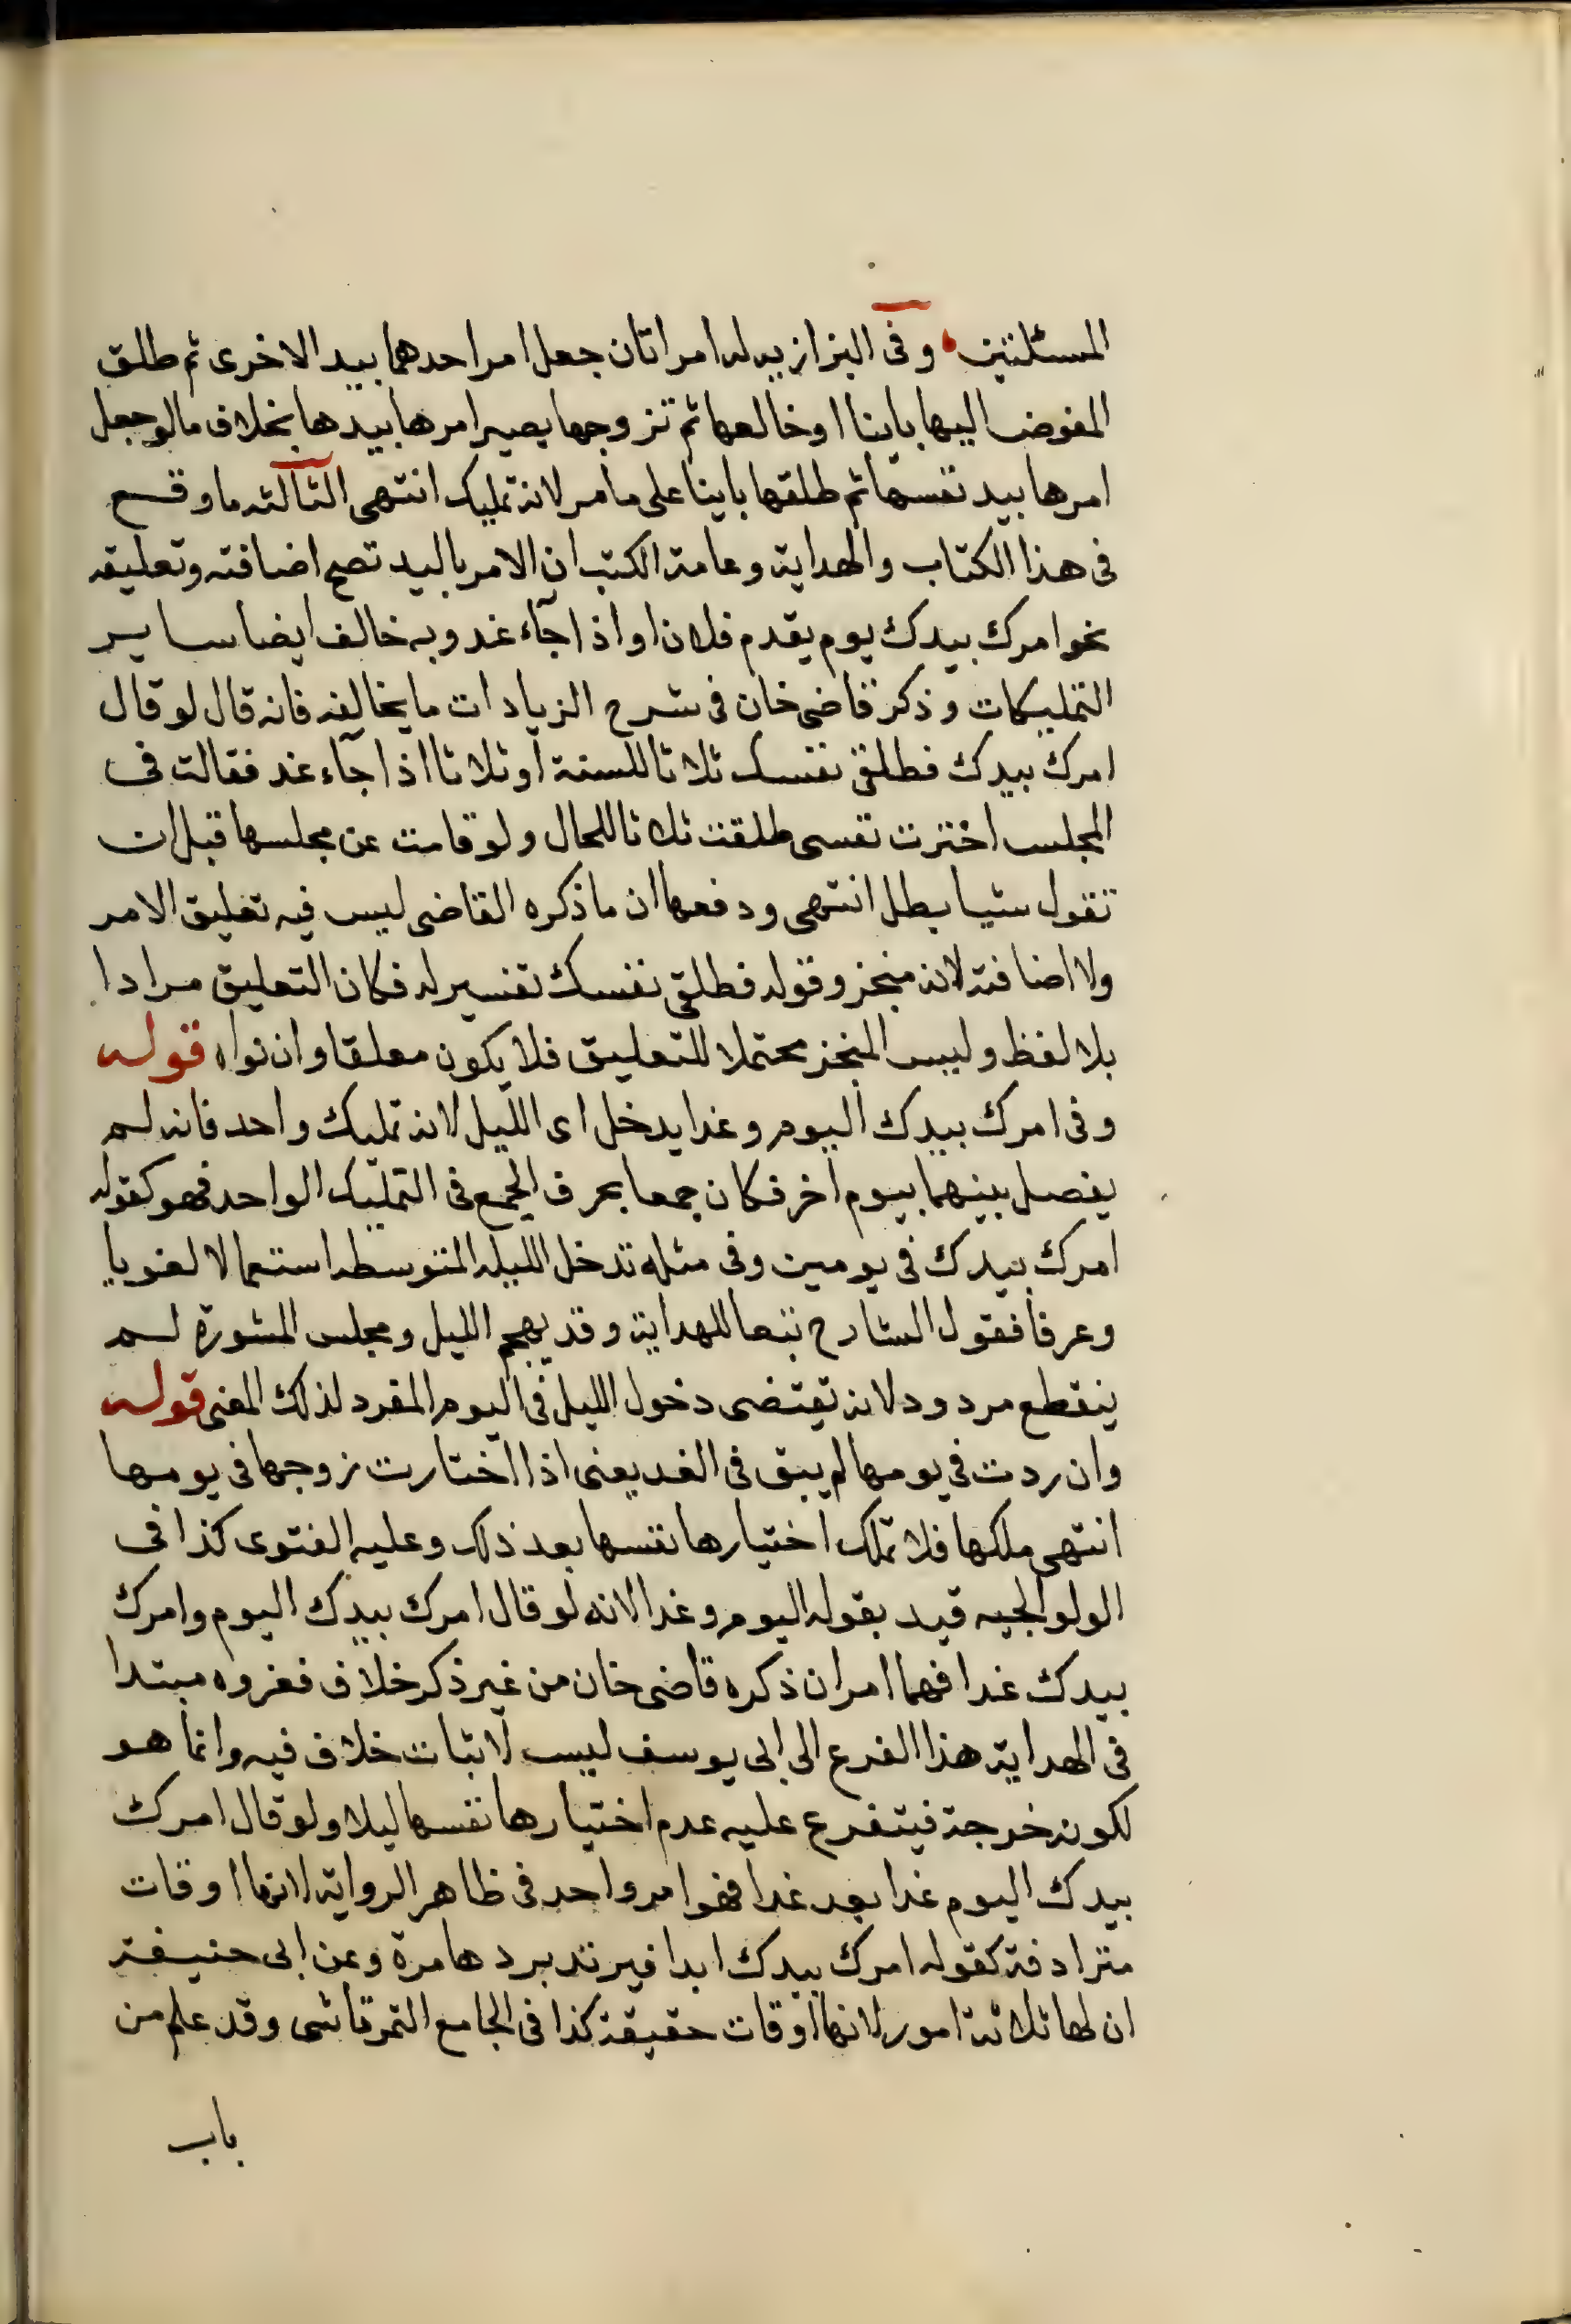 المسئلتين وفى البزازيه له امراتان جعل امر احدهما بيد الاخرى ثم طلق
المفوض اليها باينا او خالعها ثم تزوجها يصير امرها بيدها بخلاف مالو جعل
امرها بيد نفسها ثم طلقها باينا على ما مر لانه تمليك انتهى الثالثه ما وقع
فى هذا الكتاب والهداية وعامة الكتب ان الامر باليد تصح اضافته وتعليقه
نحو امرك بيدك يوم يقدم فلان او اذا جآء غد وبه خالف ايضا ساير
التمليكات وذكر قاضى خان فى شرح الزيادات ما يخالفه فانه قال لو قال
امرك بيدك فطلقى نفسك ثلاثا للسنة او ثلاثا اذا جآء غد فقالت فى
المجلس اخترت نفسى طلقت ثلاثا للحال ولو قامت عن مجلسها قبل ان
تقول شيا بطل انتهى ودفعها ان ما ذكره القاضى ليس فيه تعليق الامر
ولا اضافته لانه منجز وقوله فطلقى نفسك تفسير له فكان التعليق مرادا
بلا لفظ وليس المنجز محتملا للتعليق فلا يكون معلقا وان نواه قوله
وفى امرك بيدك اليوم وغدا يدخل اى الليل لانه تمليك واحد فانه لم
يفصل بينهما بيوم اخر فكان جمعا بحرف الجمع فى التمليك الواحد فهو كقوله
امرك بيدك فى يومين وفى مثله تدخل الليله المتوسطه استعمالا لغويا
وعرفا فقول الشارح تبعا للهداية وقد يهجم الليل ومجلس المشورة لم
ينقطع مردود لانه تقتضى دخول الليل فى اليوم المفرد لذلك المعنى قوله
وان ردت فى يومها لم يبق فى الغد يعنى اذا اختارت زوجها فى يومها
انتهى ملكها فلا تملك اختيارها نفسها بعد ذلك وعليه الفتوى كذا فى
الولوالجيه قيد بقوله اليوم وغدا لانه لو قال امرك بيدك اليوم وامرك
بيدك غدا فهما امران ذكره قاضى خان من غير ذكر خلاف فعزوه مبتدا
فى الهداية هذا الفرع الى ابى يوسف ليس لاثبات خلاف فيه وانما هو
لكونه خرجة فيتفرع عليه عدم اختيارها نفسها ليلا ولو قال امرك
بيدك اليوم غدا بعد غدا فهو امر واحد فى ظاهر الرواية لانها اوقات
مترادفة كقوله امرك بيدك ابدا فيرتد بردها مرة وعن ابى حنيفة
ان لها ثلاثة امور لانها اوقات حقيقة كذا فى الجامع التمرتاشى وقد علم من
باب